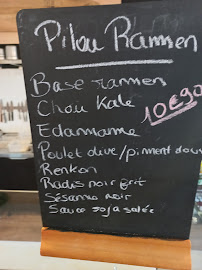 Pilou Ramen
Base ramen
Chou Kale
10€90
Edamame
Poulet olive/piment doux
Renkon
Radis noir frit
Sésame noir
Sauce soja salée